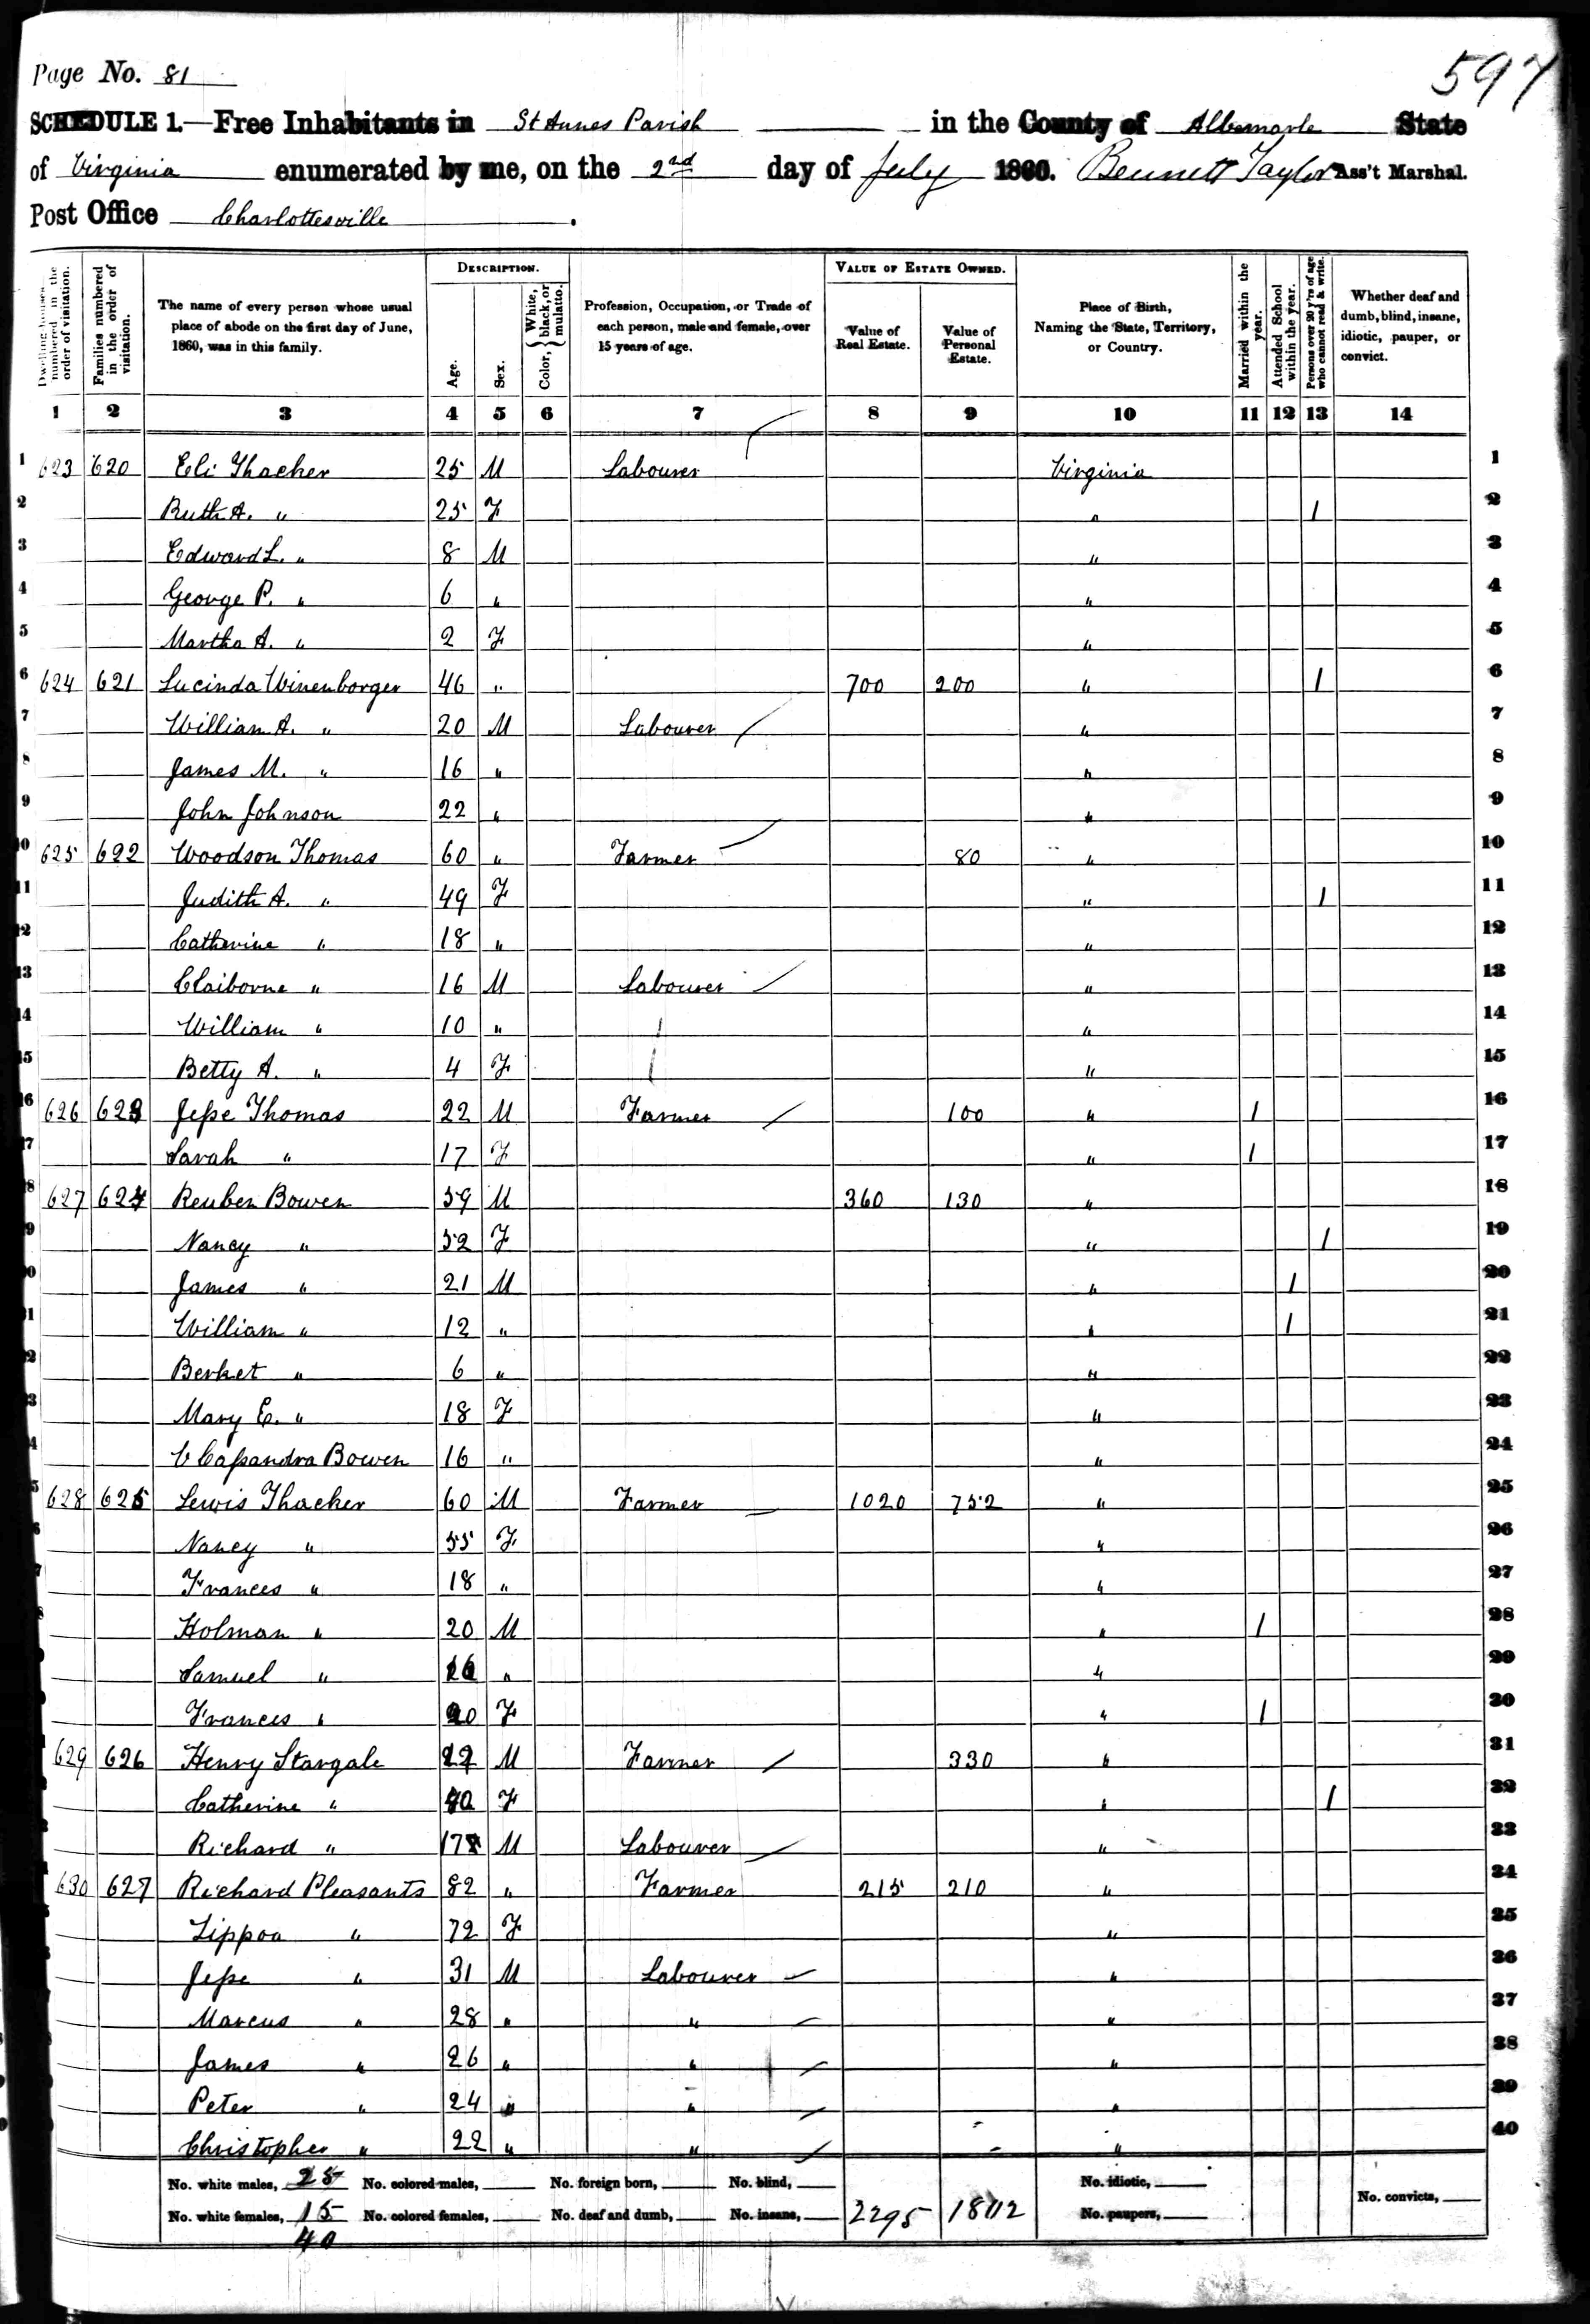 597
Page No. 81
SCHEDULE 1.—Free Inhabitants in St Annes Parish in the County of Albemarle State
of Virginia enumerated by me, on the 2nd day of July 1860. Bennett Taylor Ass't Marshal.
Post Office Charlottesville.
Dwelling houses numbered in the order of visitation.
Families numbered in the order of visitation.
The name of every person whose usual place of abode on the first day of June, 1860, was in this family.
DESCRIPTION.
Age.
Sex.
Color, {White, black, or mulatto.
Profession, Occupation, or Trade of each person, male and female, over 15 years of age.
VALUE OF ESTATE OWNED.
Value of Real Estate.
Value of Personal Estate.
Place of Birth, Naming the State, Territory, or Country.
Married within the year.
Attended School within the year.
Persons over 20 y'rs of age who cannot read & write.
Whether deaf and dumb, blind, insane, idiotic, pauper, or convict.
1 2 3 4 5 6 7 8 9 10 11 12 13 14
1 623 620 Eli Thacker 25 M Labourer Virginia 1
2 Ruth A. " 25 F " 1 2
3 Edward L. " 8 M " 3
4 George P. " 6 " " 4
5 Martha A. " 2 F " 5
6 624 621 Lucinda Winenborger 46 " 700 200 " 1 6
7 William A. " 20 M Labourer " 7
8 James M. " 16 " " 8
9 John Johnson 22 " " 9
10 625 622 Woodson Thomas 60 " Farmer 80 " 10
11 Judith A. " 49 F " 1 11
12 Catherine " 18 " " 12
13 Claiborne " 16 M Labourer " 13
14 William " 10 " " 14
15 Betty A. " 4 F " 15
16 626 623 Jesse Thomas 22 M Farmer 100 " 1 16
17 Sarah " 17 F " 1 17
18 627 624 Reuben Bowen 59 M 360 130 " 18
19 Nancy " 52 F " 1 19
20 James " 21 M " 1 20
21 William " 12 " " 1 21
22 Berket " 6 " " 22
23 Mary E. " 18 F " 23
24 Cassandra Bowen 16 " " 24
25 628 625 Lewis Thacker 60 M Farmer 1020 752 " 25
26 Nancy " 55 F " 26
27 Frances " 18 " " 27
28 Holman " 20 M " 1 28
Samuel " " " 29
Frances " 20 F " 1 30
629 626 Henry Stargale M Farmer 330 " 31
Catherine " F " 1 32
Richard " 17 M Labourer " 33
630 627 Richard Pleasants 82 " Farmer 215 210 " 34
Zippoa " 72 F " 35
Jesse " 31 M Labourer " 36
Marcus " 28 " " " 37
James " 26 " " " 38
Peter " 24 " " " 39
Christopher " 22 " " " 40
No. white males, 25 No. colored males, No. foreign born, No. blind, No. idiotic,
No. white females, 15 No. colored females, No. deaf and dumb, No. insane, 2295 1802 No. paupers, No. convicts,
40